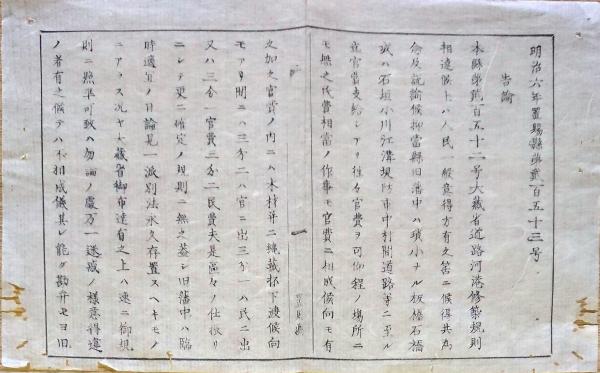 明治六年置賜縣第貳百五十三号
告諭
本縣第貳百五十二号大藏省道路河港修築規則
相達候上ハ人民一般意得方有之筈ニ候得共為
念及説諭候抑當縣旧藩中ハ瑣小ナル板橋石橋
或ハ石垣小川江溝堤防市中村間道路等ニ至ル
迄官費支給シアリ往々官費ヲ可仰程ノ場所ニ
モ無之民費相當ノ作事モ官費ニ相成候向モ有
之加之官費ノ内ニハ木材并ニ縄莚杯下渡候向
モアリ間ニハ三分二ハ官ニ出三分一ハ民ニ出
又ハ三分一官費三分二民費夫是區々ノ仕来リ
ニシテ更ニ確定ノ規則ニ無之蓋シ旧藩中ハ臨
時適宜ノ目論見一滅別法永久存置スヘキモノ
ニアラス况ヤ大藏省御布達有之上ハ速ニ御規
則ニ照準可致ハ勿論ノ處万一迷惑ノ様意得違
ノ者有之候テハ不相成儀其レ能ク勘弁セヨ旧
置賜縣